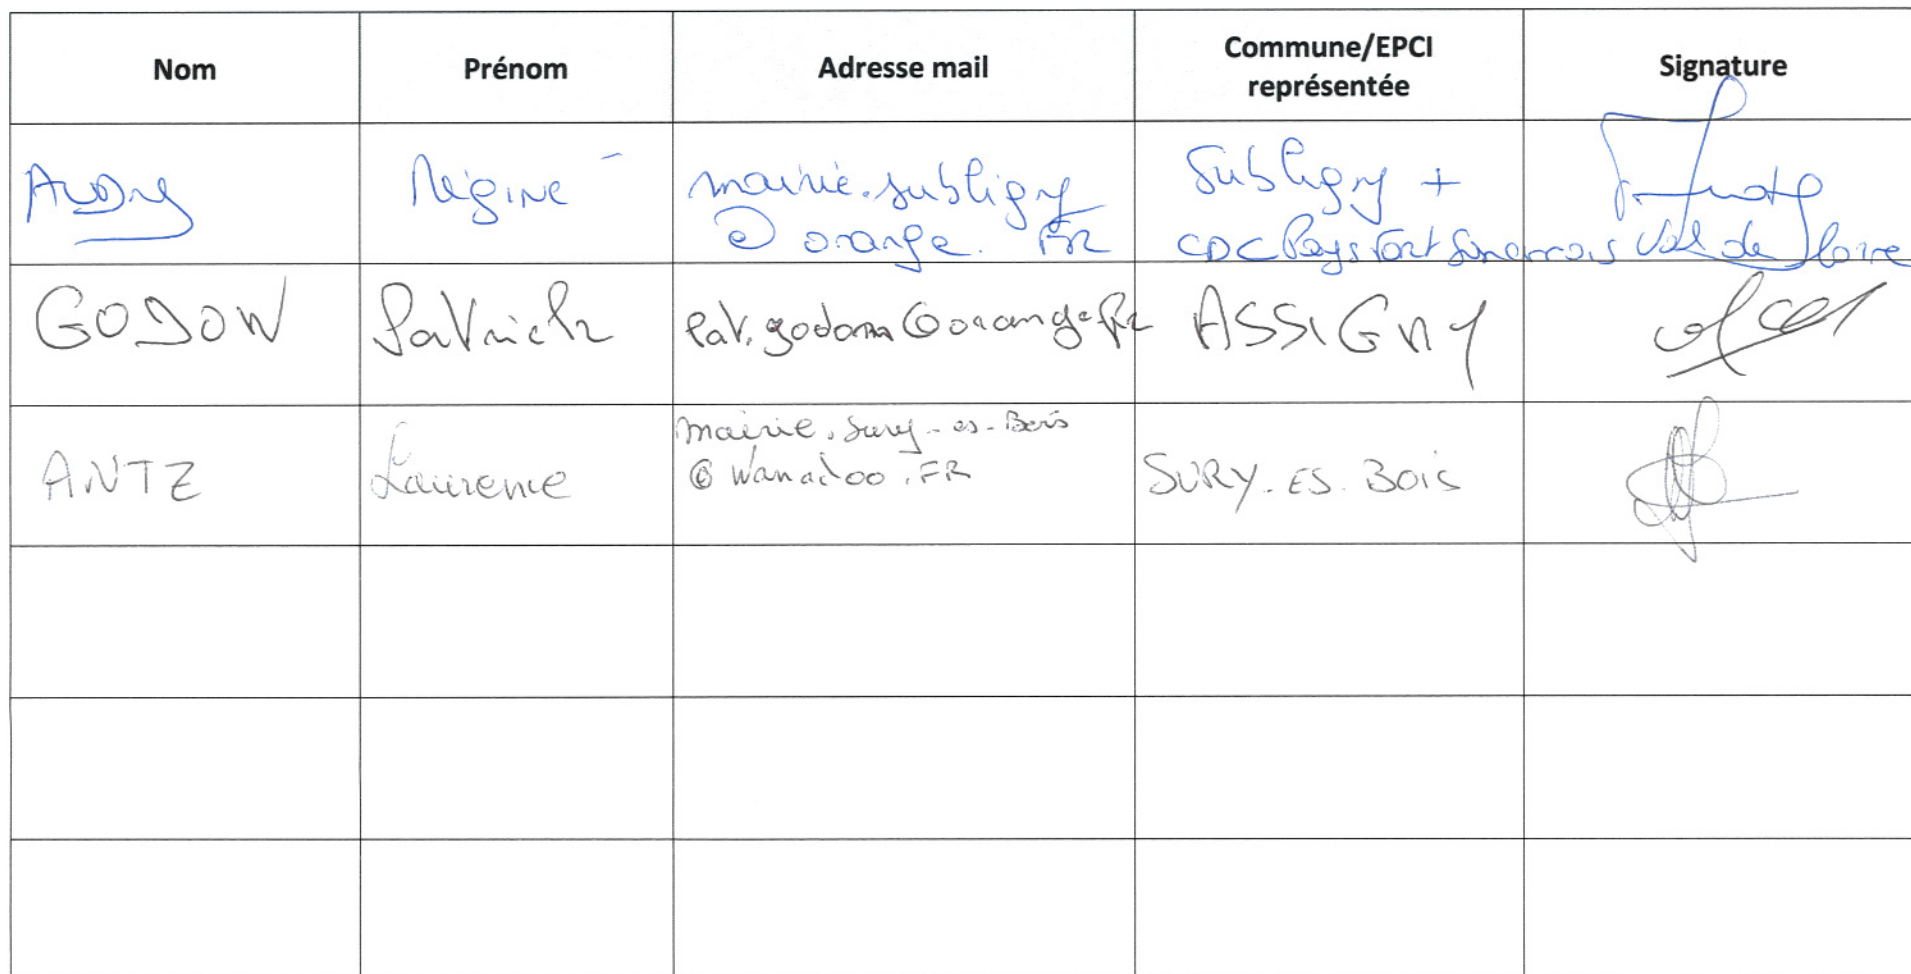 Nom Prénom Adresse mail Commune/EPCI représentée Signature
Audry Régine mairie.subligny @ orange.FR Subligny + CDC Pays Fort Sancerrois Val de Loire
GODON Patrick pat.godon@orange.fr ASSIGNY
ANTZ Laurence mairie.sury-es-Bois @ wanadoo.FR SURY-ES-BOIS